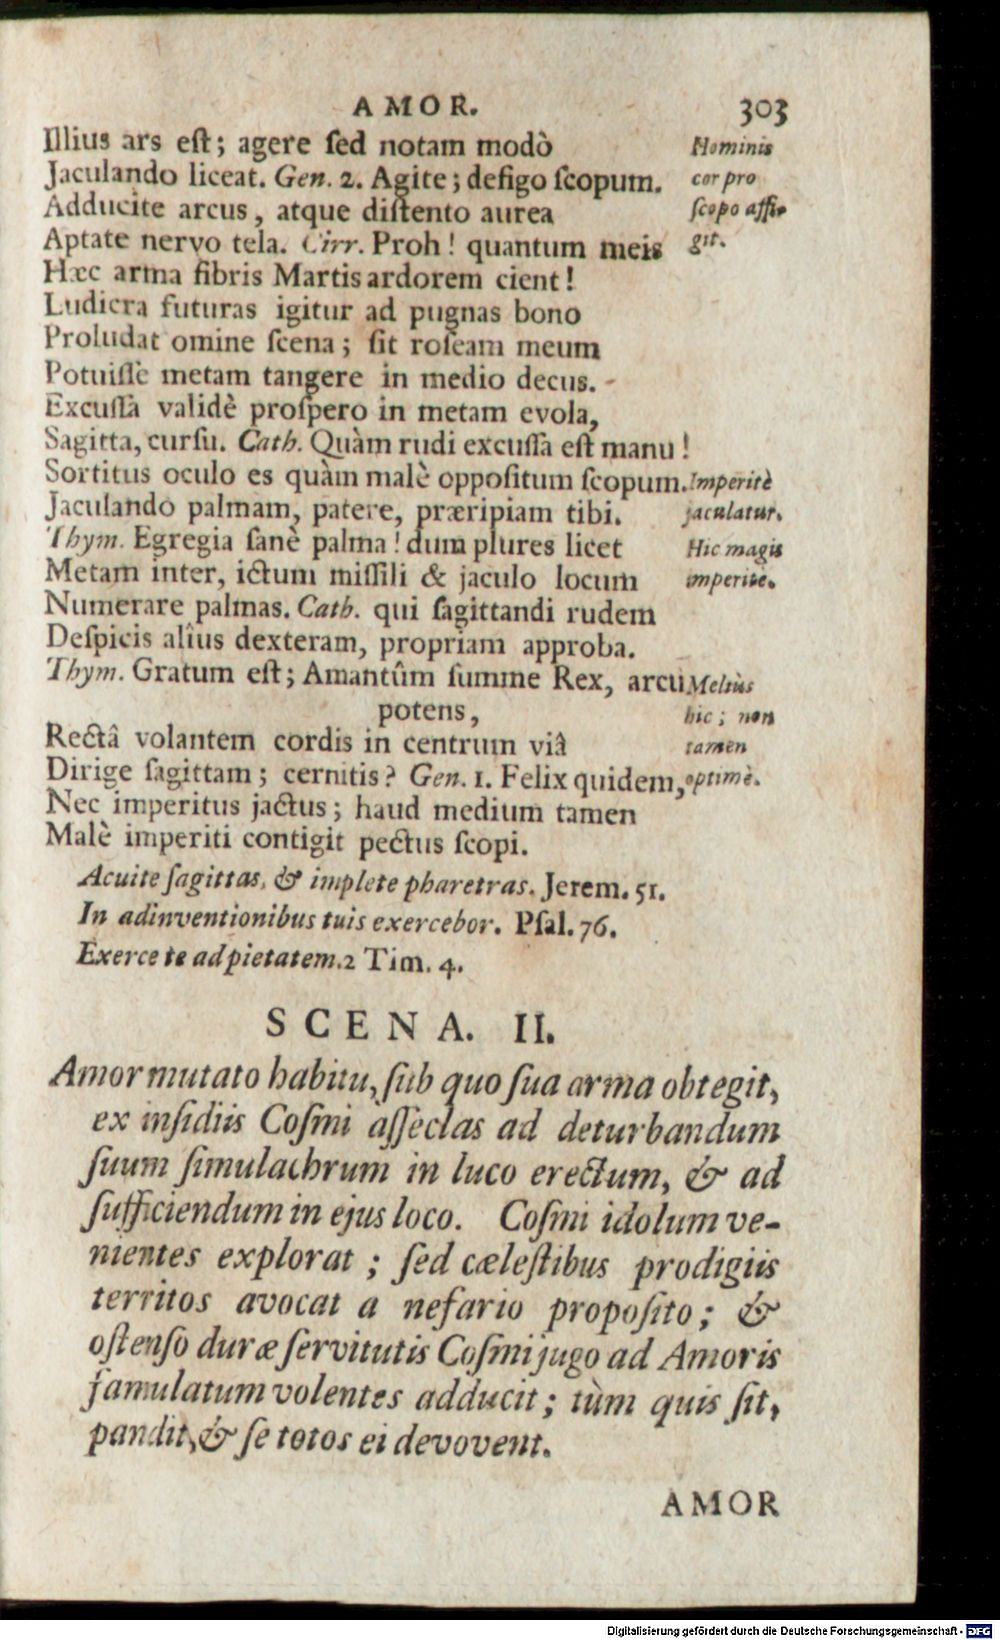 AMOR. 303
Illius ars eſt; agere ſed notam modò
Jaculando liceat. Gen. 2. Agite; defigo ſcopum.
Adducite arcus, atque diſtento aurea
Aptate nervo tela. Cirr. Proh! quantum meis
Hæc arma fibris Martis ardorem cient!
Ludicra futuras igitur ad pugnas bono
Proludat omine ſcena; ſit roſeam meum
Potuiſſe metam tangere in medio decus.
Excuſſa validè proſpero in metam evola,
Sagitta, curſu. Cath. Quàm rudi excuſſa eſt manu!
Sortitus oculo es quàm malè oppoſitum ſcopum.
Jaculando palmam, patere, præripiam tibi.
Thym. Egregia ſanè palma! dum plures licet
Metam inter, ictum miſſili & jaculo locum
Numerare palmas. Cath. qui ſagittandi rudem
Deſpicis alîus dexteram, propriam approba.
Thym. Gratum eſt; Amantûm ſumme Rex, arcu
potens,
Rectâ volantem cordis in centrum viâ
Dirige ſagittam; cernitis? Gen. 1. Felix quidem,
Nec imperitus jactus; haud medium tamen
Malè imperiti contigit pectus ſcopi.
Hominis
cor pro
ſcopo affi-
git.
Imperitè
jaculatur.
Hic magis
imperitè.
Meliùs
hic; non
tamen
optimè.
Acuite ſagittas, & implete pharetras. Jerem. 51.
In adinventionibus tuis exercebor. Pſal. 76.
Exerce te ad pietatem. 2 Tim. 4.
SCENA. II.
Amor mutato habitu, ſub quo ſua arma obtegit,
ex inſidiis Coſmi aſſeclas ad deturbandum
ſuum ſimulachrum in luco erectum, & ad
ſufficiendum in ejus loco. Coſmi idolum ve-
nientes explorat; ſed cæleſtibus prodigiis
territos avocat a nefario propoſito; &
oſtenſo duræ ſervitutis Coſmi jugo ad Amoris
famulatum volentes adducit; tùm quis ſit,
pandit, & ſe totos ei devovent.
AMOR
Digitalisierung gefördert durch die Deutsche Forschungsgemeinschaft - DFG